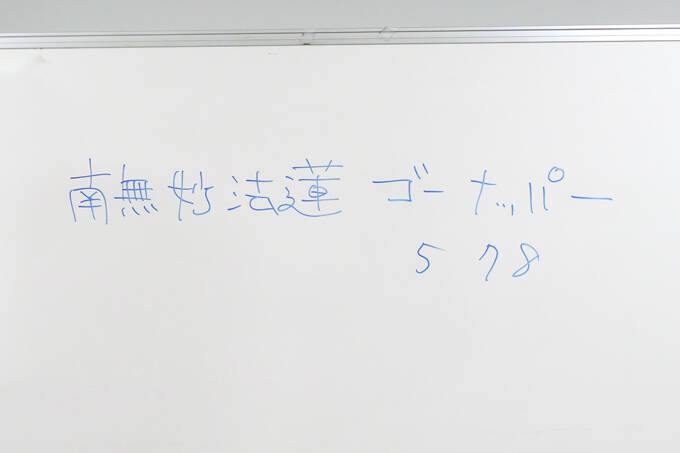 南無妙法蓮 ゴーナッパー
5 7 8